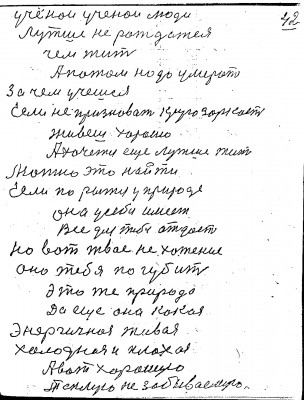 42
учёной ученой люди
Лутше не рождатея
чем жит
А потом надо умерат
За чем учешся
Если не признават
живеш харашо
А хочетя еще лутше жит
Можно это найти
Если по у природе
она у себи имеет
Все для тебя отдает
Но вот твае не хотение
оно тебя погубит
Это же природа
Да еще она какая
Энергичная живая
Холодная и плохая
А вот харошую
Теплую не забываемую.